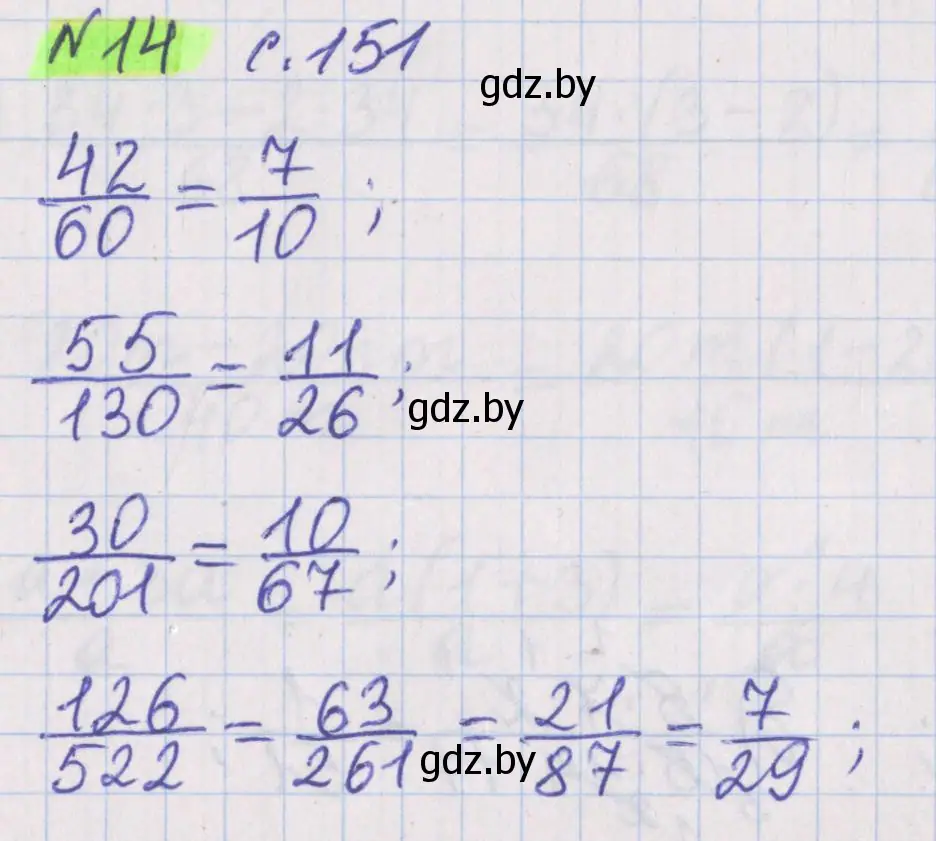 №14 с.151
gdz.by
42/60 = 7/10 ;
55/130 = 11/26 ;
gdz.by
30/201 = 10/67 ;
126/522 = 63/261 = 21/87 = 7/29 ;
gdz.by